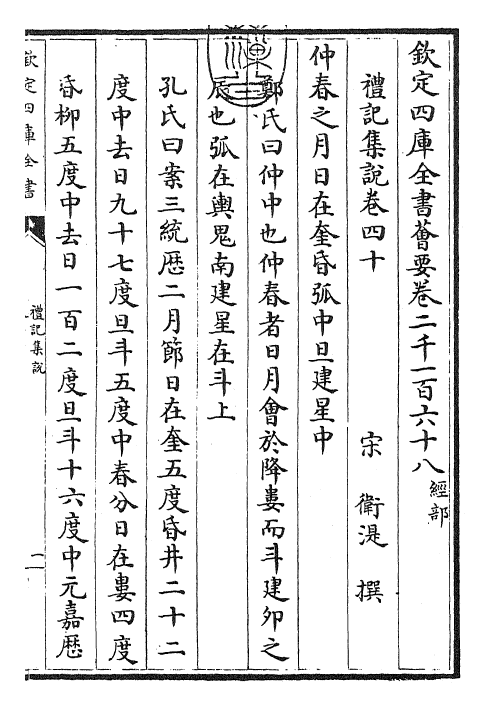 欽定四庫全書薈要卷二千一百六十八 經部
禮記集說卷四十 宋 衛湜 撰
仲春之月日在奎昏弧中旦建星中
鄭氏曰仲中也仲春者日月會於降婁而斗建卯之
辰也弧在輿鬼南建星在斗上
孔氏曰案三統厯二月節日在奎五度昏井二十二
度中去日九十七度旦斗五度中春分日在婁四度
昏柳五度中去日一百二度旦斗十六度中元嘉厯
欽定四庫全書
禮記集說